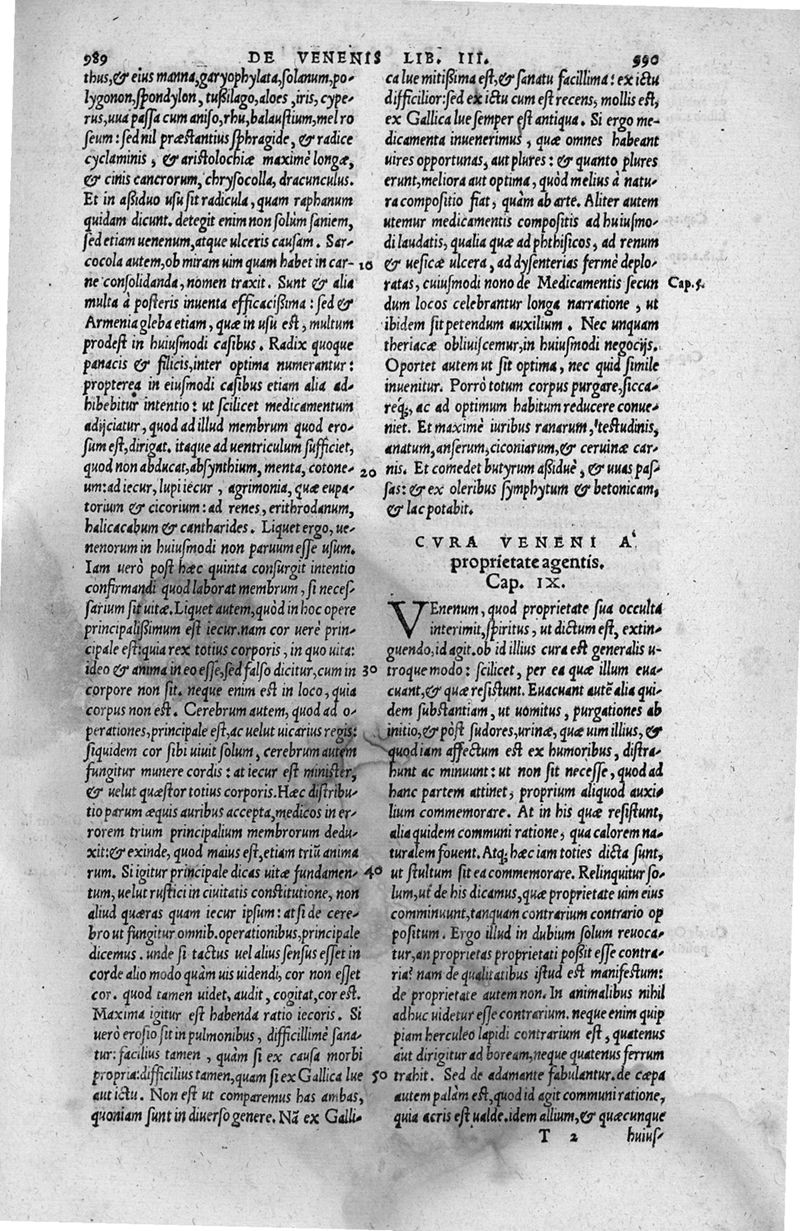 989
DE VENENIS LIB. III.
990
thus, & eius manna, garyophylata, solanum, po-
lygonon, spondylon, tußilago, aloes, iris, cype-
rus, uua passa cum aniso, rhu, balaustium, mel ro
seum: sed nil præstantius sphragide, & radice
cyclaminis, & aristolochiæ maximè longæ,
& cinis cancrorum, chrysocolla, dracunculus.
Et in aßiduo usu sit radicula, quam raphanum
quidam dicunt. detegit enim non solùm saniem,
sed etiam uenenum, atque ulceris causam. Sar-
cocola autem, ob miram uim quam habet in car-
10
ne consolidanda, nomen traxit. Sunt & alia
multa à posteris inuenta efficacißima: sed &
Armenia gleba etiam, quæ in usu est, multum
prodest in huiusmodi casibus. Radix quoque
panacis & filicis, inter optima numerantur:
propterea in eiusmodi casibus etiam alia ad-
hibebitur intentio: ut scilicet medicamentum
adijciatur, quod ad illud membrum quod ero-
sum est, dirigat. itaque ad uentriculum sufficiet,
quod non abducat, absynthium, menta, cotone-
20
um: ad iecur, lupi iecur, agrimonia, quæ eupa-
torium & cicorium: ad renes, erithrodanum,
halicacabum & cantharides. Liquet ergo, ue-
nenorum in huiusmodi non paruum esse usum.
Iam uerò post hæc quinta consurgit intentio
confirmandi quod laborat membrum, si neces-
sarium sit uitæ. Liquet autem, quòd in hoc opere
principalißimum est iecur. nam cor uerè prin-
cipale est: quia rex totius corporis, in quo uita:
ideo & anima in eo esse, sed falso dicitur, cum in
30
corpore non sit. neque enim est in loco, quia
corpus non est. Cerebrum autem, quod ad o-
perationes, principale est, ac uelut uicarius regis:
siquidem cor sibi uiuit solum, cerebrum autem
fungitur munere cordis: at iecur est minister,
& uelut quæstor totius corporis. Hæc distribu-
tio parum æquis auribus accepta, medicos in er-
rorem trium principalium membrorum dedu-
xit: & exinde, quod maius est, etiam triũ anima
rum. Si igitur principale dicas uitæ fundamen-
40
tum, uelut rustici in ciuitatis constitutione, non
aliud quæras quam iecur ipsum: at si de cere-
bro ut fungitur omnib. operationibus, principale
dicemus. unde si tactus uel alius sensus esset in
corde alio modo quàm uis uidendi, cor non esset
cor. quod tamen uidet, audit, cogitat, cor est.
Maxima igitur est habenda ratio iecoris. Si
uerò erosio sit in pulmonibus, difficillimè sana-
tur: facilius tamen, quàm si ex causa morbi
propria: difficilius tamen, quam si ex Gallica lue
50
aut ictu. Non est ut comparemus has ambas,
quoniam sunt in diuerso genere. Nã ex Galli-
ca lue mitißima est, & sanatu facillima: ex ictu
difficilior: sed ex ictu cum est recens, mollis est,
ex Gallica lue semper est antiqua. Si ergo me-
dicamenta inuenerimus, quæ omnes habeant
uires opportunas, aut plures: & quanto plures
erunt, meliora aut optima, quòd melius à natu-
ra compositio fiat, quàm ab arte. Aliter autem
utemur medicamentis compositis ad huiusmo-
di laudatis, qualia quæ ad phthisicos, ad renum
& uesicæ ulcera, ad dysenterias fermè deplo-
ratas, cuiusmodi nono de Medicamentis secun
Cap. 5.
dum locos celebrantur longa narratione, ut
ibidem sit petendum auxilium. Nec unquam
theriacæ obliuiscemur, in huiusmodi negocijs.
Oportet autem ut sit optima, nec quid simile
inuenitur. Porrò totum corpus purgare, sicca-
req́;, ac ad optimum habitum reducere conue-
niet. Et maximè iuribus ranarum, testudinis,
anatum, anserum, ciconiarum, & ceruinæ car-
nis. Et comedet butyrum aßiduè, & uuas pas-
sas: & ex oleribus symphytum & betonicam,
& lac potabit.
CVRA VENENI A'
proprietate agentis.
Cap. IX.
VEnenum, quod proprietate sua occulta
interimit, spiritus, ut dictum est, extin-
guendo, id agit. ob id illius cura est generalis u-
troque modo: scilicet, per ea quæ illum eua-
cuant, & quæ resistunt. Euacuant autẽ alia qui-
dem substantiam, ut uomitus, purgationes ab
initio, & pòst sudores, urinæ, quæ uim illius, &
quod iam affectum est ex humoribus, distra-
hunt ac minuunt: ut non sit necesse, quod ad
hanc partem attinet, proprium aliquod auxi-
lium commemorare. At in his quæ resistunt,
alia quidem communi ratione, qua calorem na-
turalem fouent. Atq; hæc iam toties dicta sunt,
ut stultum sit ea commemorare. Relinquitur so-
lum, ut de his dicamus, quæ proprietate uim eius
comminuunt, tanquam contrarium contrario op
positum. Ergo illud in dubium solum reuoca-
tur, an proprietas proprietati poßit esse contra-
ria? nam de qualitatibus istud est manifestum:
de proprietate autem non. In animalibus nihil
adhuc uidetur esse contrarium. neque enim quip
piam herculeo lapidi contrarium est, quatenus
aut dirigitur ad boream, neque quatenus ferrum
trahit. Sed de adamante fabulantur. de cæpa
autem palàm est, quod id agit communi ratione,
quia acris est ualde. idem allium, & quæcunque
T 2
huius-